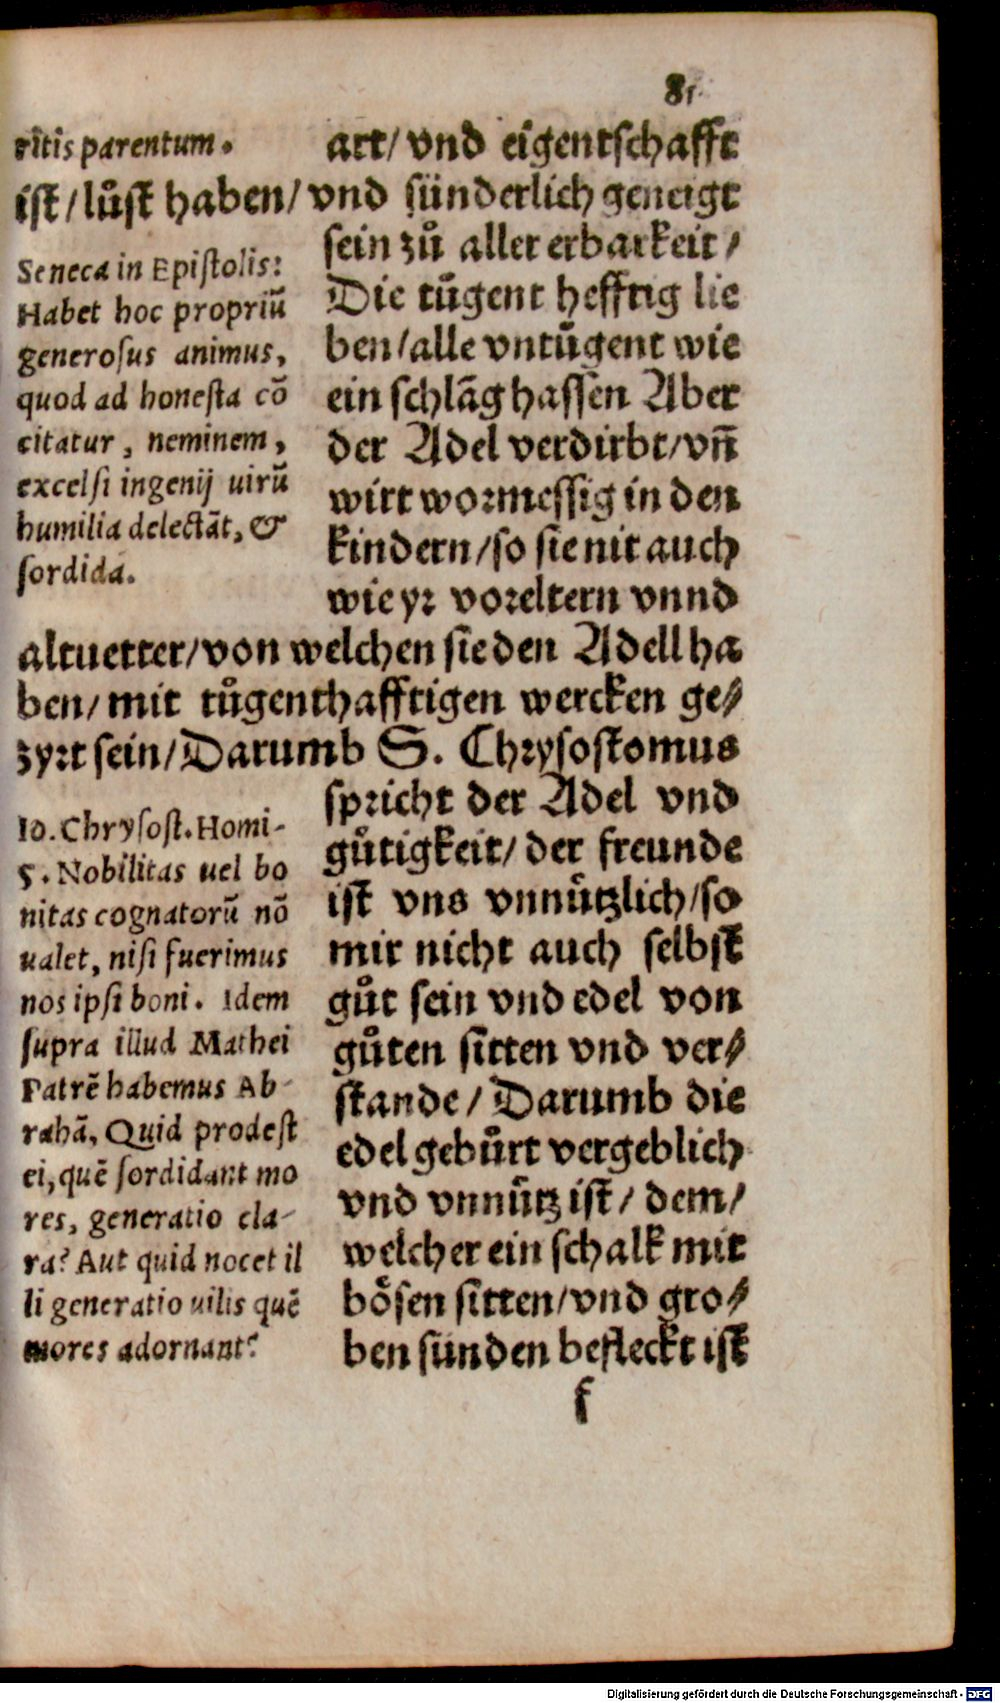 81
ritis parentum.
art/ vnd eigentschafft
ist/ lůst haben/ vnd sünderlich geneigt
sein zů aller erbarkeit/
Die tůgent hefftig lie
ben/ alle vntůgent wie
ein schlāg hassen Aber
der Adel verdirbt/ vñ
wirt wormessig in den
kindern/ so sie nit auch
wie yr voreltern vnnd
Seneca in Epistolis:
Habet hoc propriū
generosus animus,
quod ad honesta cō
citatur, neminem,
excelsi ingenij uirū
humilia delectāt, &
sordida.
altuetter/ von welchen sie den Adell ha
ben/ mit tůgenthafftigen wercken ge⸗
zyrt sein/ Darumb S. Chrysostomus
spricht der Adel vnd
gůtigkeit/ der freunde
ist vns vnnützlich/ so
mir nicht auch selbst
gůt sein vnd edel von
gůten sitten vnd ver⸗
stande/ Darumb die
edel gebůrt vergeblich
vnd vnnütz ist/ dem/
welcher ein schalk mit
bösen sitten/ vnd gro⸗
ben sünden befleckt ist
Io. Chrysost. Homi-
5. Nobilitas uel bo
nitas cognatorū nō
ualet, nisi fuerimus
nos ipsi boni. Idem
supra illud Mathei
Patrē habemus Ab-
rahā, Quid prodest
ei, quē sordidant mo
res, generatio cla-
ra? Aut quid nocet il
li generatio uilis quē
mores adornant?
f
Digitalisierung gefördert durch die Deutsche Forschungsgemeinschaft - DFG